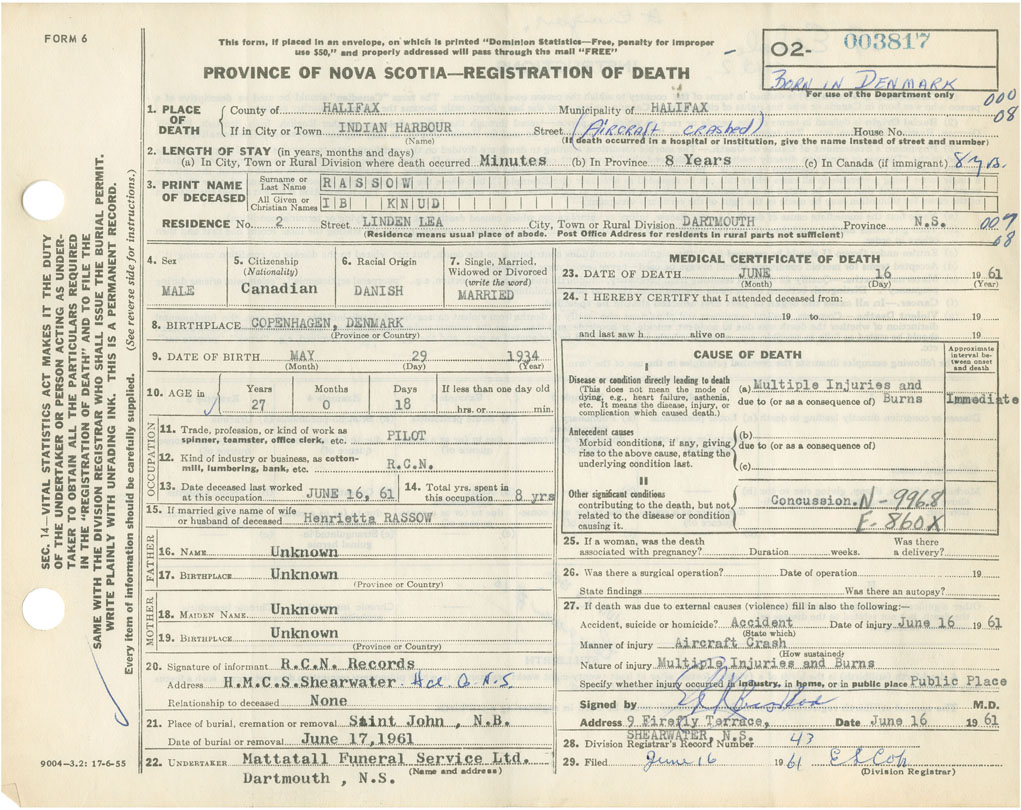 FORM 6
This form, if placed in an envelope, on which is printed "Dominion Statistics—Free, penalty for improper
use $50," and properly addressed will pass through the mail "FREE"
O2- 003817
PROVINCE OF NOVA SCOTIA—REGISTRATION OF DEATH
BORN IN DENMARK
For use of the Department only
000
08
1. PLACE OF DEATH
County of HALIFAX Municipality of HALIFAX
If in City or Town INDIAN HARBOUR Street (AIRCRAFT CRASHED) House No.
(Name) (If death occurred in a hospital or institution, give the name instead of street and number)
2. LENGTH OF STAY (in years, months and days)
(a) In City, Town or Rural Division where death occurred Minutes (b) In Province 8 Years (c) In Canada (if immigrant) 8 yrs.
3. PRINT NAME OF DECEASED
Surname or Last Name RASSOW
All Given or Christian Names IB KNUD
RESIDENCE No. 2 Street LINDEN LEA City, Town or Rural Division DARTMOUTH Province N.S.
(Residence means usual place of abode. Post Office Address for residents in rural parts not sufficient)
009
08
4. Sex
MALE
5. Citizenship
(Nationality)
Canadian
6. Racial Origin
DANISH
7. Single, Married,
Widowed or Divorced
(write the word)
MARRIED
8. BIRTHPLACE COPENHAGEN, DENMARK
(Province or Country)
9. DATE OF BIRTH MAY 29 1934
(Month) (Day) (Year)
10. AGE in
Years Months Days If less than one day old
27 0 18 hrs. or min.
OCCUPATION
11. Trade, profession, or kind of work as
spinner, teamster, office clerk, etc. PILOT
12. Kind of industry or business, as cotton-
mill, lumbering, bank, etc. R.C.N.
13. Date deceased last worked
at this occupation JUNE 16, 61
14. Total yrs. spent in
this occupation 8 yrs
15. If married give name of wife
or husband of deceased Henrietta RASSOW
FATHER
16. NAME Unknown
17. BIRTHPLACE Unknown
(Province or Country)
MOTHER
18. MAIDEN NAME Unknown
19. BIRTHPLACE Unknown
(Province or Country)
20. Signature of informant R.C.N. Records
Address H.M.C.S.Shearwater
Relationship to deceased None
21. Place of burial, cremation or removal Saint John , N.B.
Date of burial or removal June 17,1961
22. UNDERTAKER Mattatall Funeral Service Ltd.
(Name and address)
Dartmouth , N.S.
MEDICAL CERTIFICATE OF DEATH
23. DATE OF DEATH JUNE 16 1961
(Month) (Day) (Year)
24. I HEREBY CERTIFY that I attended deceased from:
19 to 19
and last saw h alive on 19
CAUSE OF DEATH
Approximate
interval be-
tween onset
and death
I
Disease or condition directly leading to death
(This does not mean the mode of
dying, e.g., heart failure, asthenia,
etc. It means the disease, injury, or
complication which caused death.)
(a) Multiple Injuries and
due to (or as a consequence of) Burns Immediate
Antecedent causes
Morbid conditions, if any, giving
rise to the above cause, stating the
underlying condition last.
(b)
due to (or as a consequence of)
(c)
II
Other significant conditions
contributing to the death, but not
related to the disease or condition
causing it.
Concussion. N-996.8
E-860X
25. If a woman, was the death
associated with pregnancy? Duration weeks. Was there
a delivery?
26. Was there a surgical operation? Date of operation 19
State findings Was there an autopsy?
27. If death was due to external causes (violence) fill in also the following:—
Accident, suicide or homicide? Accident Date of injury June 16 1961
(State which)
Manner of injury Aircraft Crash
(How sustained)
Nature of injury Multiple Injuries and Burns
Specify whether injury occurred in industry, in home, or in public place Public Place
Signed by M.D.
Address 9 Firefly Terrace, Date June 16 1961
SHEARWATER, N.S.
28. Division Registrar's Record Number 43
29. Filed June 16 1961
(Division Registrar)
SEC. 14—VITAL STATISTICS ACT MAKES IT THE DUTY
OF THE UNDERTAKER OR PERSON ACTING AS UNDER-
TAKER TO OBTAIN ALL THE PARTICULARS REQUIRED
IN THE "REGISTRATION OF DEATH" AND TO FILE THE
SAME WITH THE DIVISION REGISTRAR WHO SHALL ISSUE THE BURIAL PERMIT.
WRITE PLAINLY WITH UNFADING INK. THIS IS A PERMANENT RECORD.
Every item of information should be carefully supplied. (See reverse side for instructions.)
9004-3.2: 17-6-55